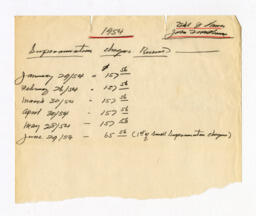 1954
Superannuation cheques Received
January 29/54 - $ 157 56
February 26/54 - 157 56
March 31/54 - 157 56
April 30/54 - 157 56
May 28/54 - 157 56
June 29/54 - 65 56 (1st of Small Superannuation cheques)